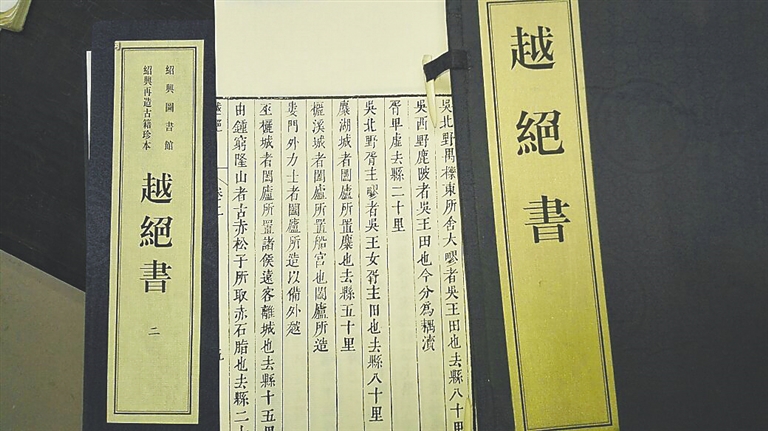 越絕書
吳北野禺櫟東所舍大疁者吳王田也去縣八十里
吳西野鹿陂者吳王田也今分為耦瀆
胥卑虛去縣二十里
吳北野胥主疁者吳王女胥主田也去縣八十里
麋湖城者闔廬所置麋也去縣五十里
欐溪城者闔廬所置船宮也闔廬所造
婁門外力士者闔廬所造以備外越
巫欐城者闔廬所置諸侯遠客離城也去縣十五里
由鍾窮隆山者古赤松子所取赤石脂也去縣二十
越絕
紹興圖書館
紹興再造古籍珍本
越絕書
二